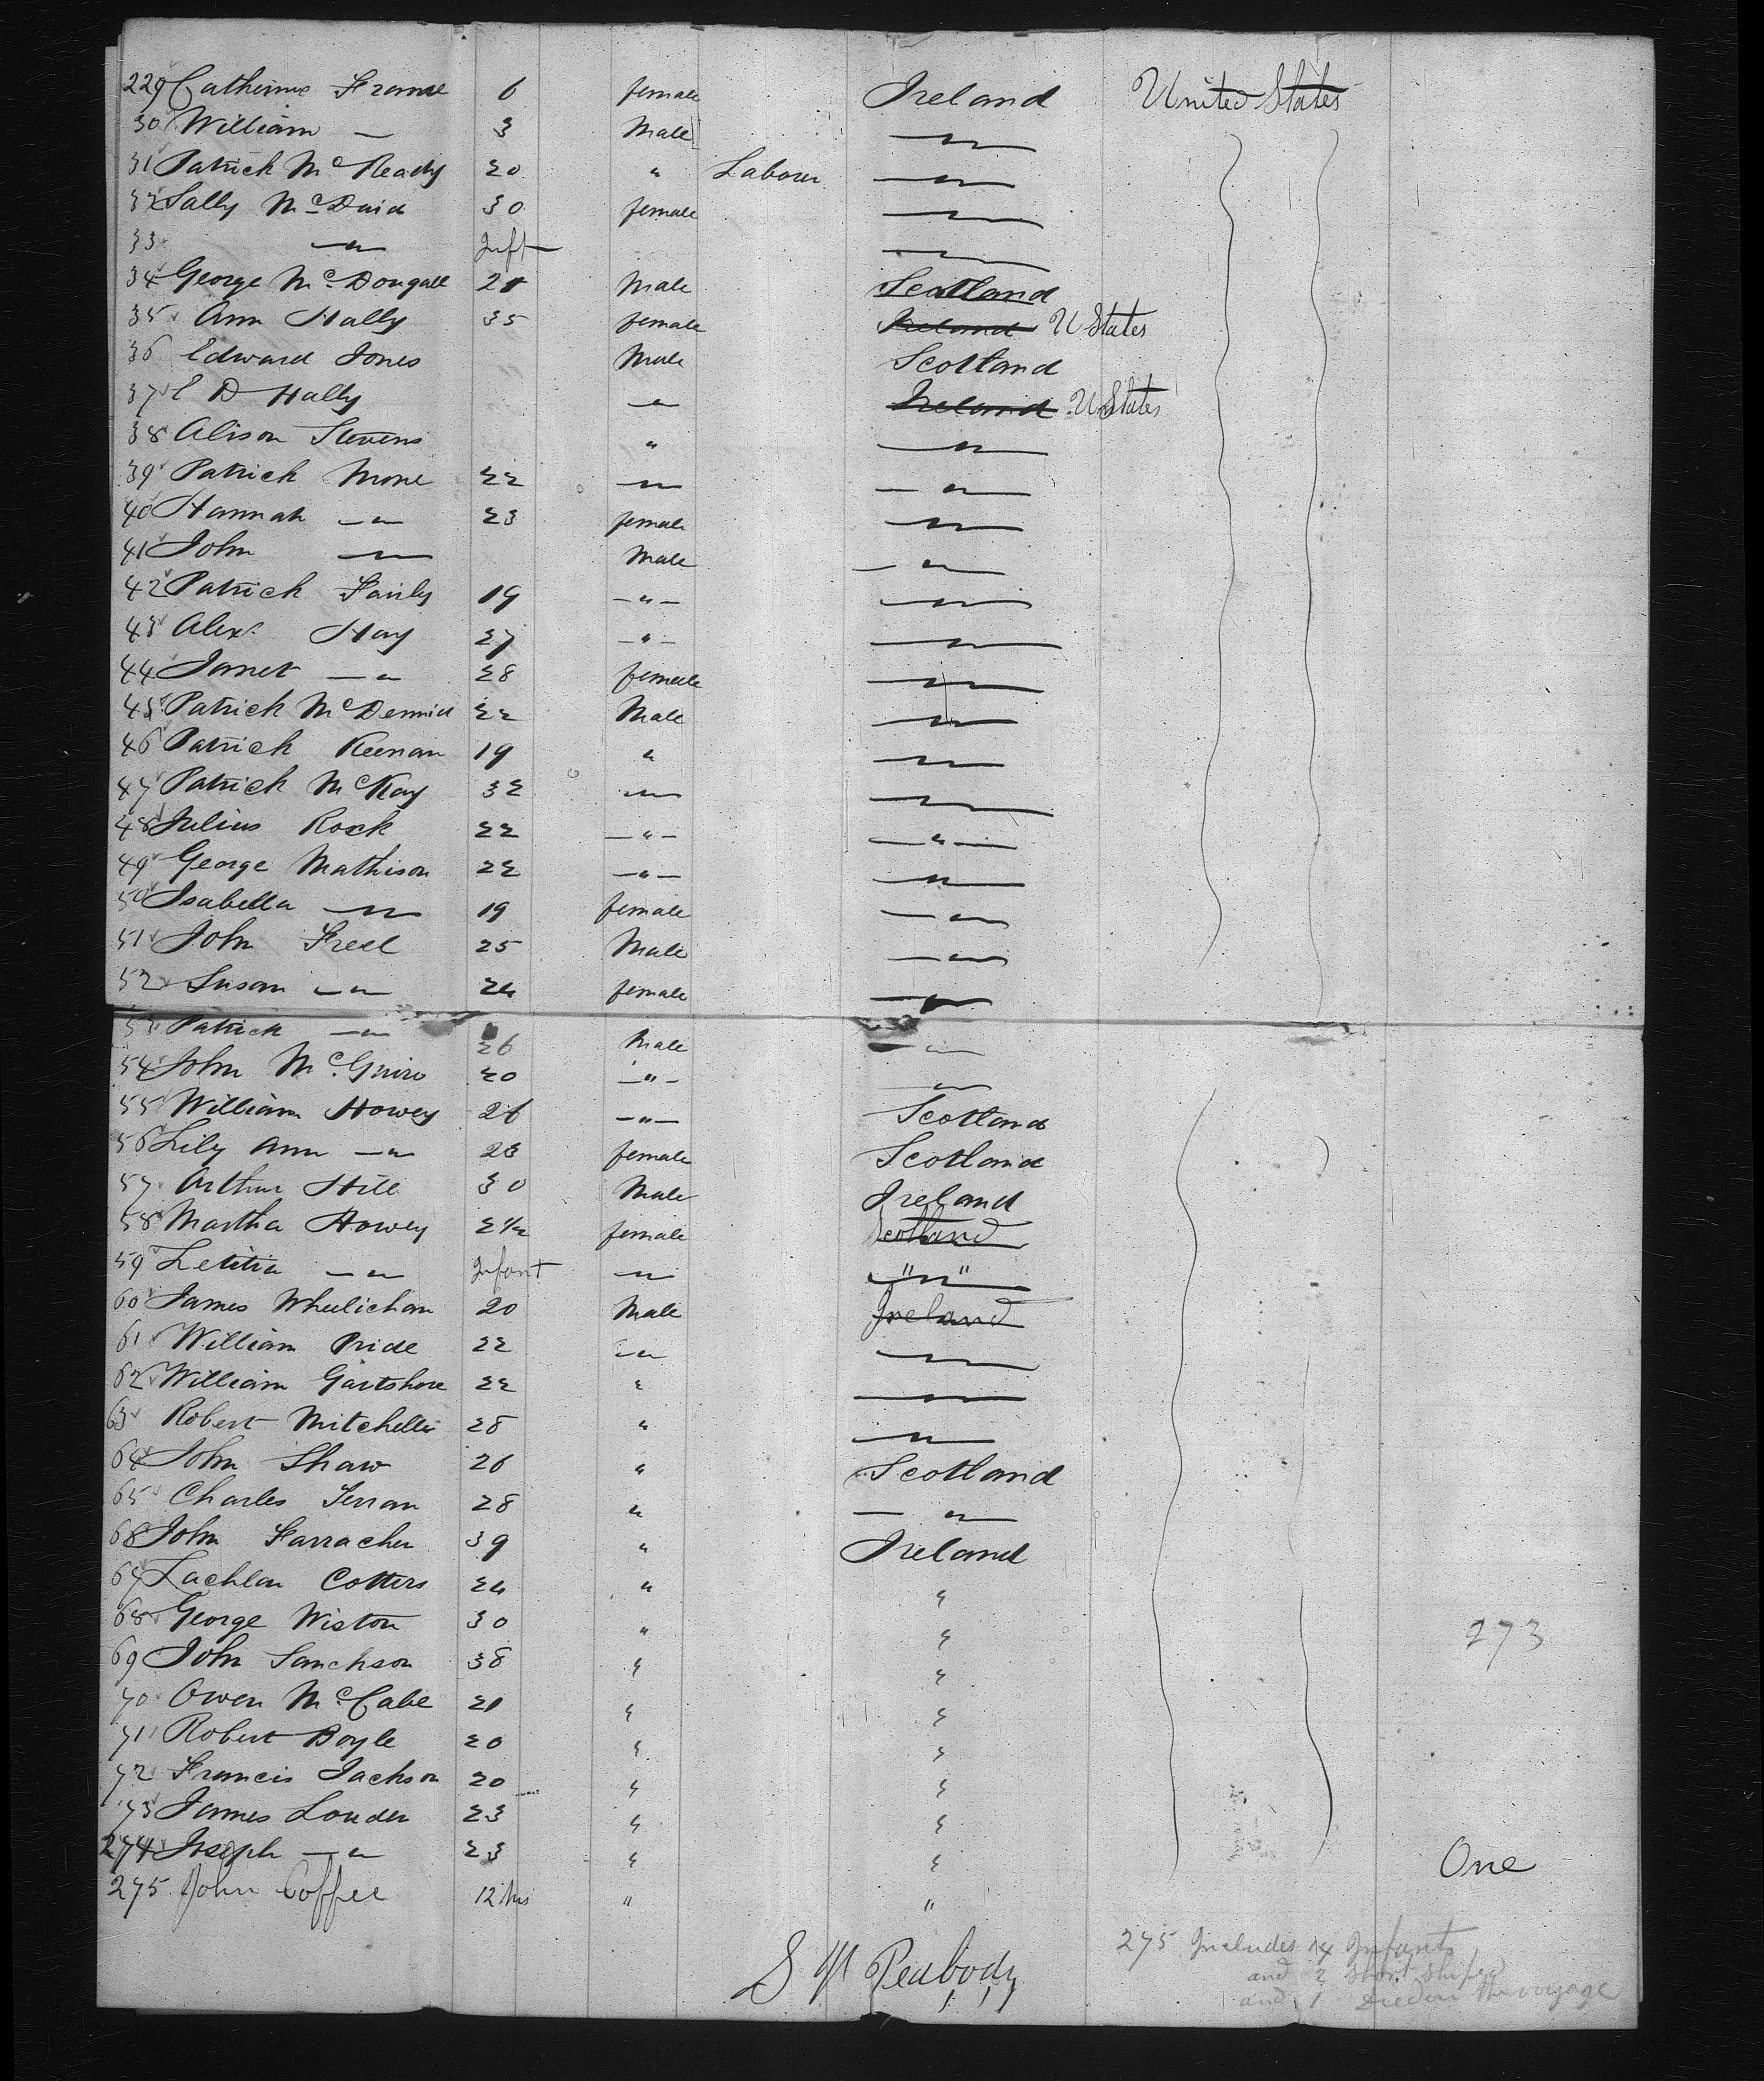 229 Catherine Frame 6 female Ireland United States
30 William — 3 Male —"—
31 Patrick McReady 20 " Labour —"—
32 Sally McDaid 30 female —"—
33 —"— Inft —"—
34 George McDougall 21 Male Scotland
35 Ann Hally 35 female Ireland U States
36 Edward Jones Male Scotland
37 E D Hally —"— Ireland U States
38 Alison Stevens " —"—
39 Patrick Mone 22 —"— —"—
40 Hannah —"— 23 female —"—
41 John —"— Male —"—
42 Patrick Fairly 19 —"— —"—
43 Alexr. Hay 27 —"— —"—
44 Janet —"— 28 female —"—
45 Patrick McDermid 22 Male —"—
46 Patrick Keenan 19 " —"—
47 Patrick McKay 32 —"— —"—
48 Julius Rock 22 —"— —"—
49 George Mathison 22 —"— —"—
50 Isabella —"— 19 female —"—
51 John Freel 25 Male —"—
52 Susan —"— 24 female —"—
53 Patrick —"— 26 Male —"—
54 John McGuire 20 —"— —"—
55 William Howey 26 —"— Scotland
56 Lily Ann —"— 23 female Scotland
57 Arthur Hill 30 Male Ireland
58 Martha Howey 2½ female Scotland
59 Letitia —"— Infant —"— "—"—"
60 James Wheelichan 20 Male Ireland
61 William Pride 22 —"— —"—
62 William Gartshore 22 " —"—
63 Robert Mitchell 28 " —"—
64 John Shaw 26 " Scotland
65 Charles 28 " —"—
68 John Farracher 39 " Ireland
67 Lachlan Cotters 24 " "
68 George Wiston 30 " " 273
69 John 38 " "
70 Owen McCabe 21 " "
71 Robert Boyle 20 " "
72 Francis Jackson 20 " "
73 James Louden 23 " "
274 Joseph —"— 23 " " One
275 John Coffee 12 ms " "
S W Peabody 275 Includes 14 Infants
and 2 short shiped
and 1 Died on the voyage